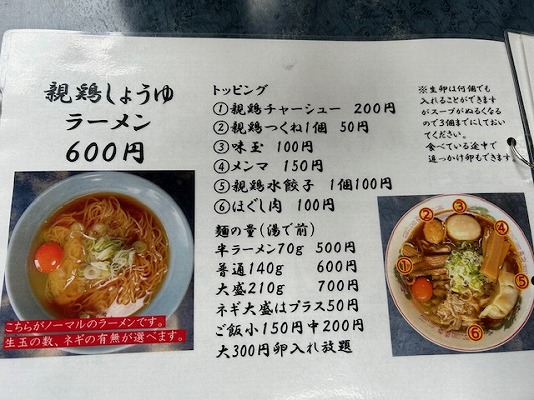 親鶏しょうゆ
ラーメン
600円
こちらがノーマルのラーメンです。
生玉の数、ネギの有無が選べます。
トッピング
①親鶏チャーシュー 200円
②親鶏つくね1個 50円
③味玉 100円
④メンマ 150円
⑤親鶏水餃子 1個100円
⑥ほぐし肉 100円
麺の量(湯で前)
半ラーメン70g 500円
普通140g 600円
大盛210g 700円
ネギ大盛はプラス50円
ご飯小150円中200円
大300円卵入れ放題
※生卵は何個でも
入れることができます
がスープがぬるくなる
ので3個までにしておい
てください。
食べている途中で
追っかけ卵もできます。
②
③
④
①
⑤
⑥